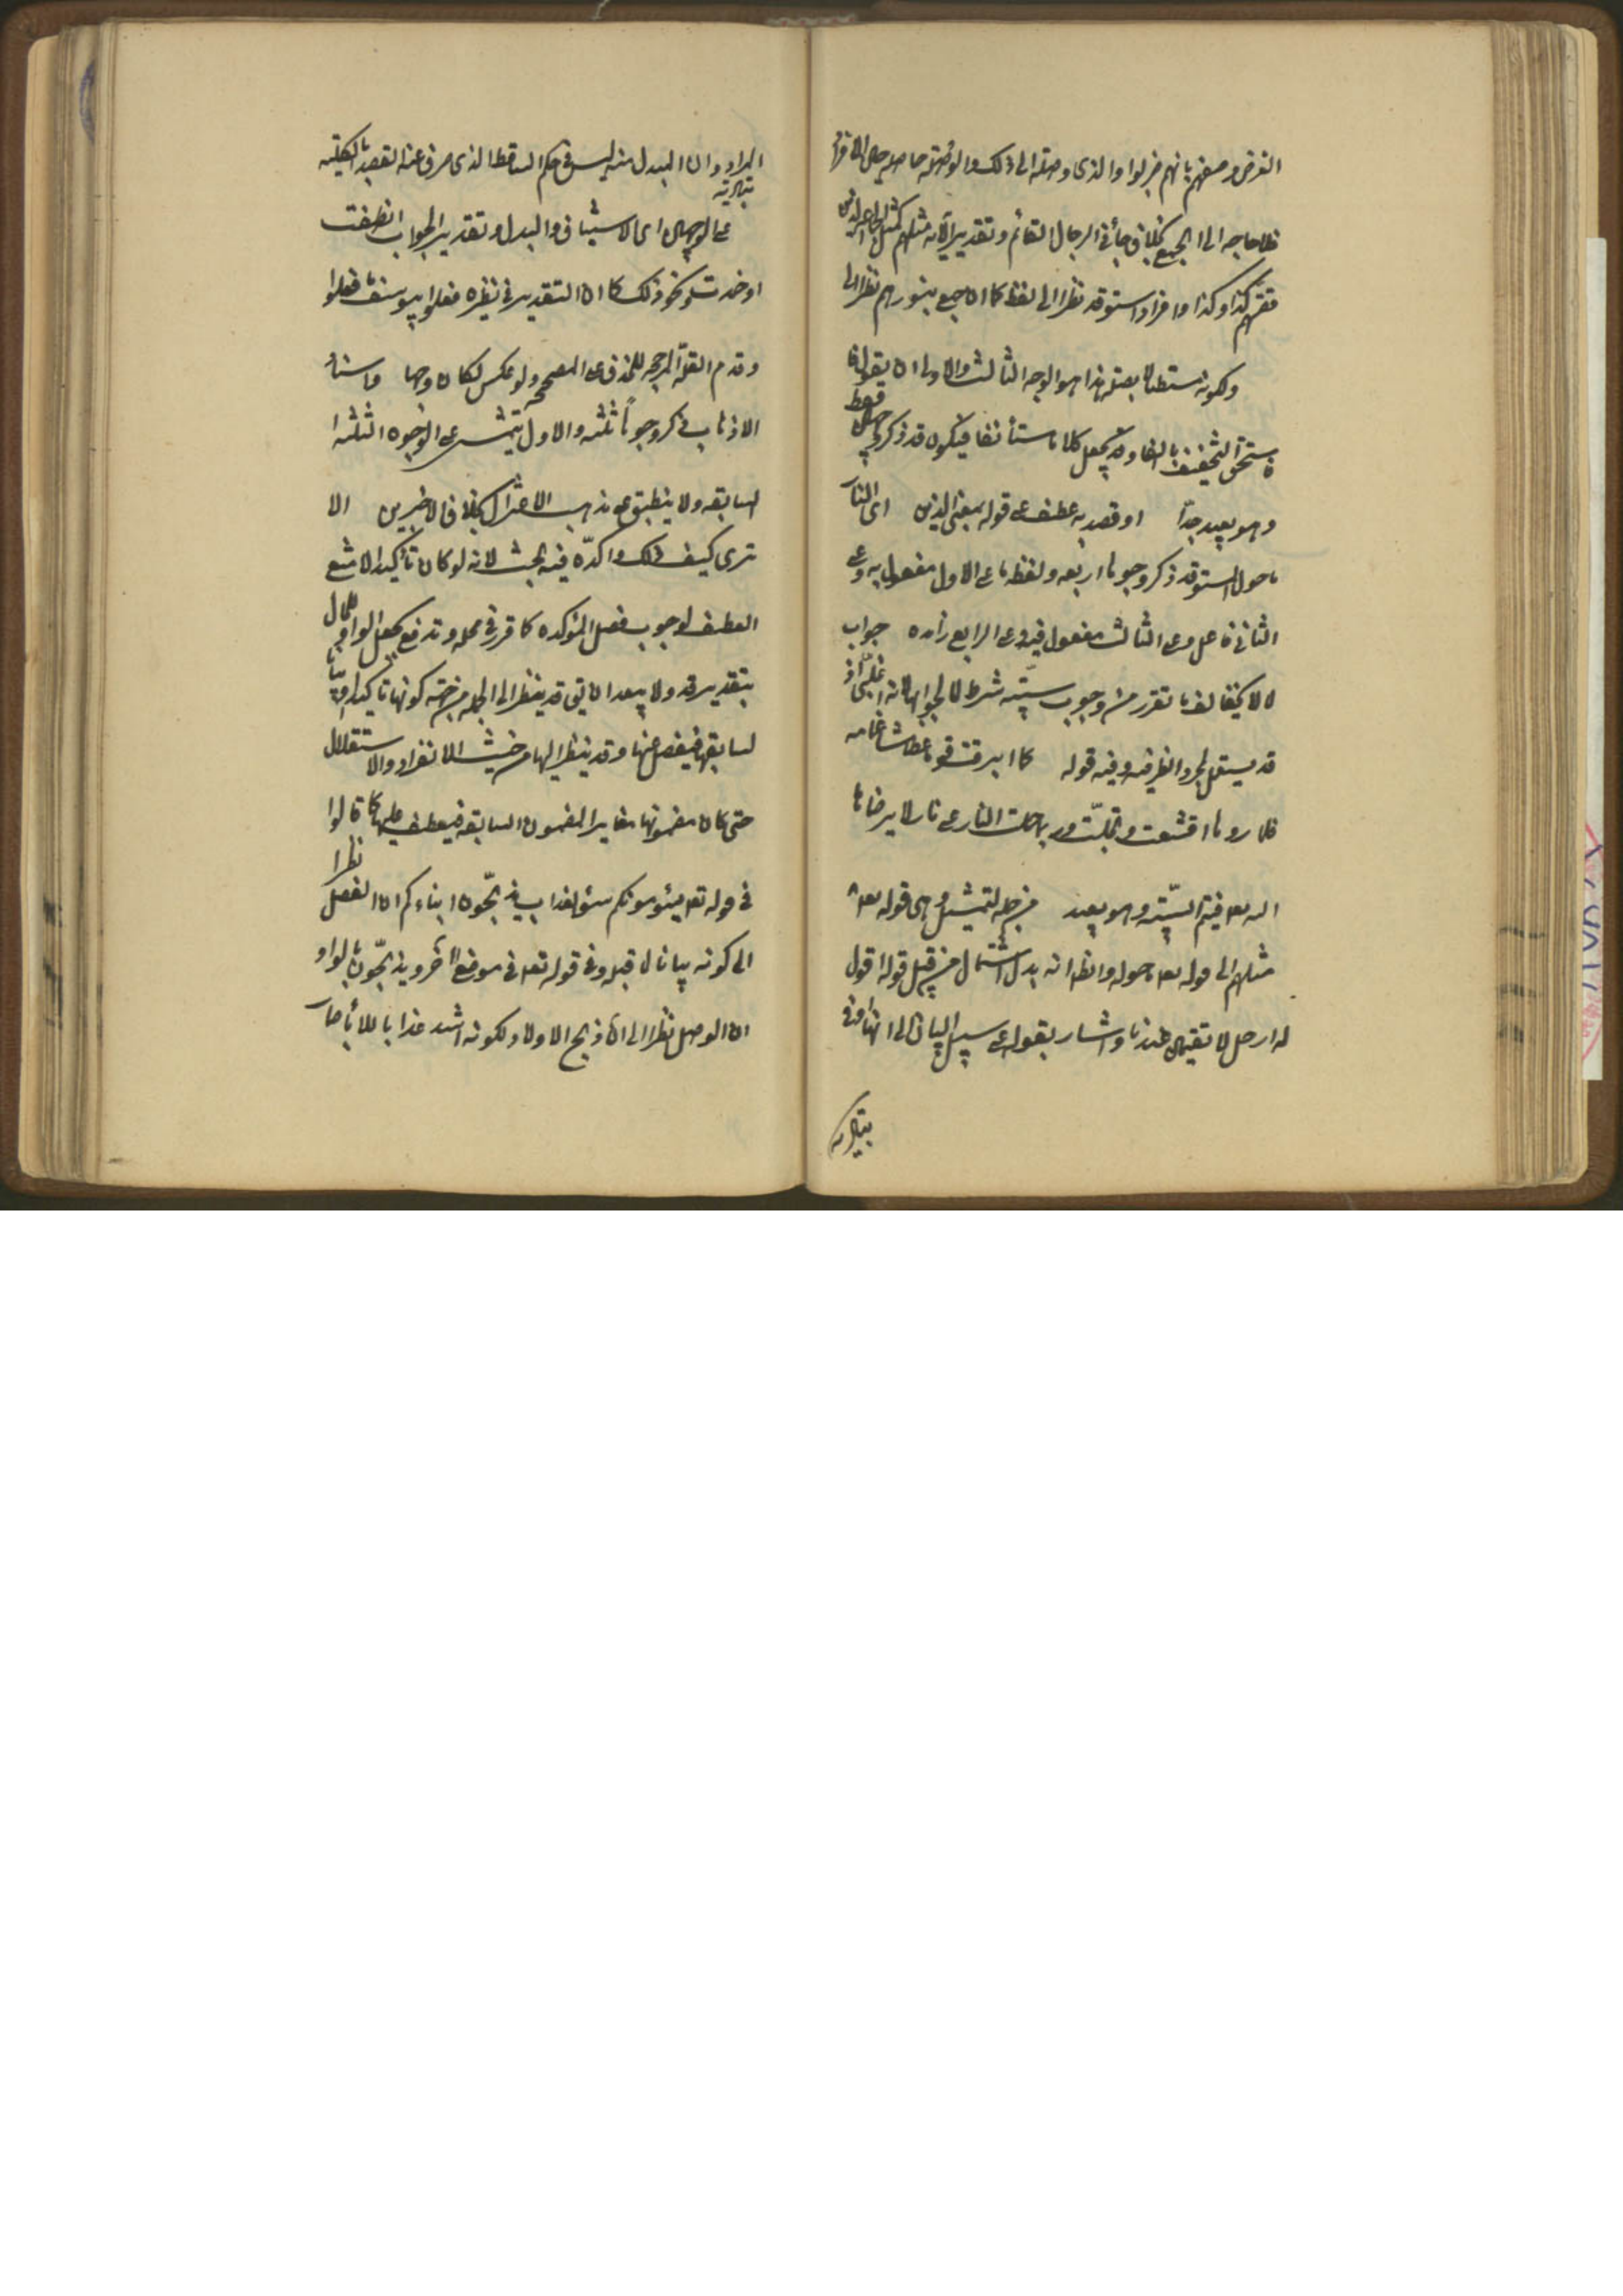 الغرض وصفهم بانهم ضربوا والذى وصلة الى ذلك والوصلة حاصله
فلا حاجه الى الجمع بخلاف جائنى الرجال القائم وتقدير الآيه مثلهم كمثل الجمع الذين
قصتهم كذا وكذا وافراد استوقد نظرا الى لفظ كما ان جمع بنورهم نظرا الى
ولكونه مستطالا بصلته هذا هو الوجه الثالث والاولى ان يقول
يستحق التخفيف بالفاء ولم يجعل كلاما مستأنفا فيكون قد ذكر وجهين فقط
وهو بعيد جدا او قصد به عطف على قوله بمعنى الذين اى النار
ما حول المستوقد ذكر وجوها اربعه ولفظه ما على الاول مفعول به وعلى
الثانى فاعل وعلى الثالث مفعول فيه وعلى الرابع زائده جواب
لما لا يخالف ما تقرر من وجوب سببيه شرط لما لجوابها لانه اغلبى اذ
قد يستعمل لمجرد الظرفيه وفيه قوله كما ابرقت قوما عطاشا غمامه
فلما رأوها اقشعت وتجلت وربما حملت النار على نار لا يرضاها
الله تعالى فيتم السببيه وهو بعيد من جملة التمثيل وهى قوله تعالى
مثلهم الى قوله تعالى ما حوله والظاهر انه بدل اشتمال من قبيل قوله اقول
له ارحل لا تقيمن عندنا واشار بقوله على سبيل البيان الى انها اوفى
بتأدية
المراد وان المبدل منه ليس فى حكم الساقط الذى صرف عنه القصد بالكليه
بتأدية
على الوجهين اى الاستيناف والبدل وتقدير الجواب انطفت
او خمدت ونحو ذلك كما ان التقدير فى نظيره فعلوا بيوسف ما فعلوا
وقدم العلة المرجحه للحذف على المصححه ولو عكس لكان وجها واسناد
الاذهاب ذكر وجوها ثلثه والاول يتمشى على الوجوه الثلثه
السابقه ولا ينطبق على مذهب الاعتزال بخلاف الاخيرين الا
ترى كيف ذلك واكده فيه بحث لانه لو كان تأكيدا لامتنع
العطف لوجوب فصل المؤكده كما قرر فى محله وتدفع بجعل الواو للحال
بتقدير قد ولا يبعد ان يق قد ينظر الى الجمله من جهة كونها تأكيدا او بيانا
لسابقها فيفصل عنها وقد ينظر اليها من حيث الانفراد والاستقلال
حتى كان مضمونها مغايرا لمضمون السابقه فيعطف عليها كما قالوا
فى قوله تعالى يسومونكم سوء العذاب يذبحون ابناءكم ان الفصل نظرا
الى كونه بيانا لما قبله وفى قوله تعالى فى موضع آخر ويذبحون بالواو
ان الوصل نظرا الى ان ذبح الاولاد لكونه اشد عذابا للآباء صار